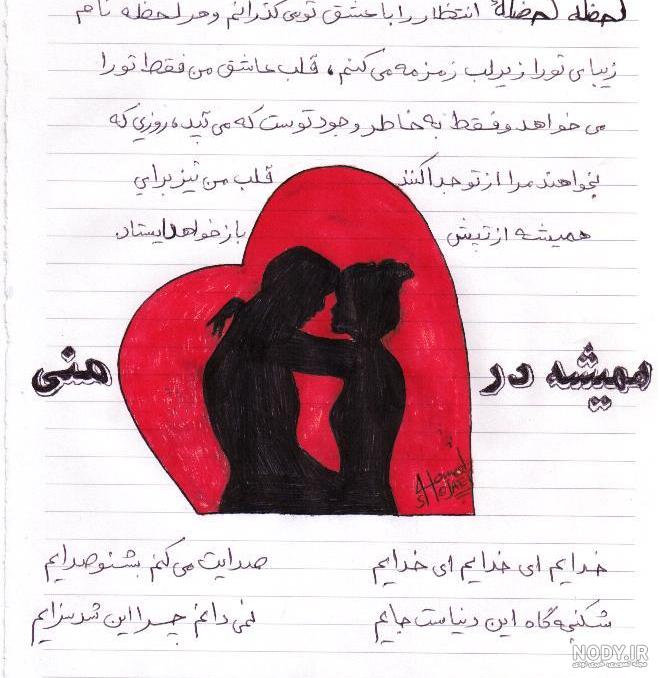 لحظه لحظهٔ انتظار را با عشق تو می گذرانم و هر لحظه نام
زیبای تو را زیر لب زمزمه می کنم ، قلب عاشق من فقط تو را
می خواهد و فقط به خاطر وجود توست که می تپد ، روزی که
بخواهند مرا از تو جدا کنند قلب من نیز برای
همیشه از تپش باز خواهد ایستاد.
همیشه در منی
Hamed
خدایم ای خدایم ای خدایم صدایت می کنم بشنو صدایم
شکنجه گاه این دنیاست جایم نمی دانم چرا این شد سزایم
NODY.IR